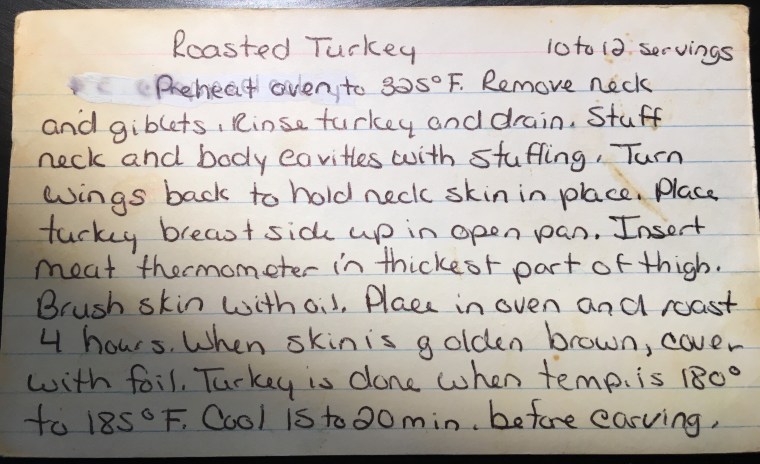 Roasted Turkey 10 to 12 servings
Preheat oven, to 325°F. Remove neck
and giblets. Rinse turkey and drain. Stuff
neck and body cavities with stuffing. Turn
wings back to hold neck skin in place. Place
turkey breast side up in open pan. Insert
meat thermometer in thickest part of thigh.
Brush skin with oil. Place in oven and roast
4 hours. When skin is golden brown, cover
with foil. Turkey is done when temp. is 180°
to 185°F. Cool 15 to 20 min. before carving.